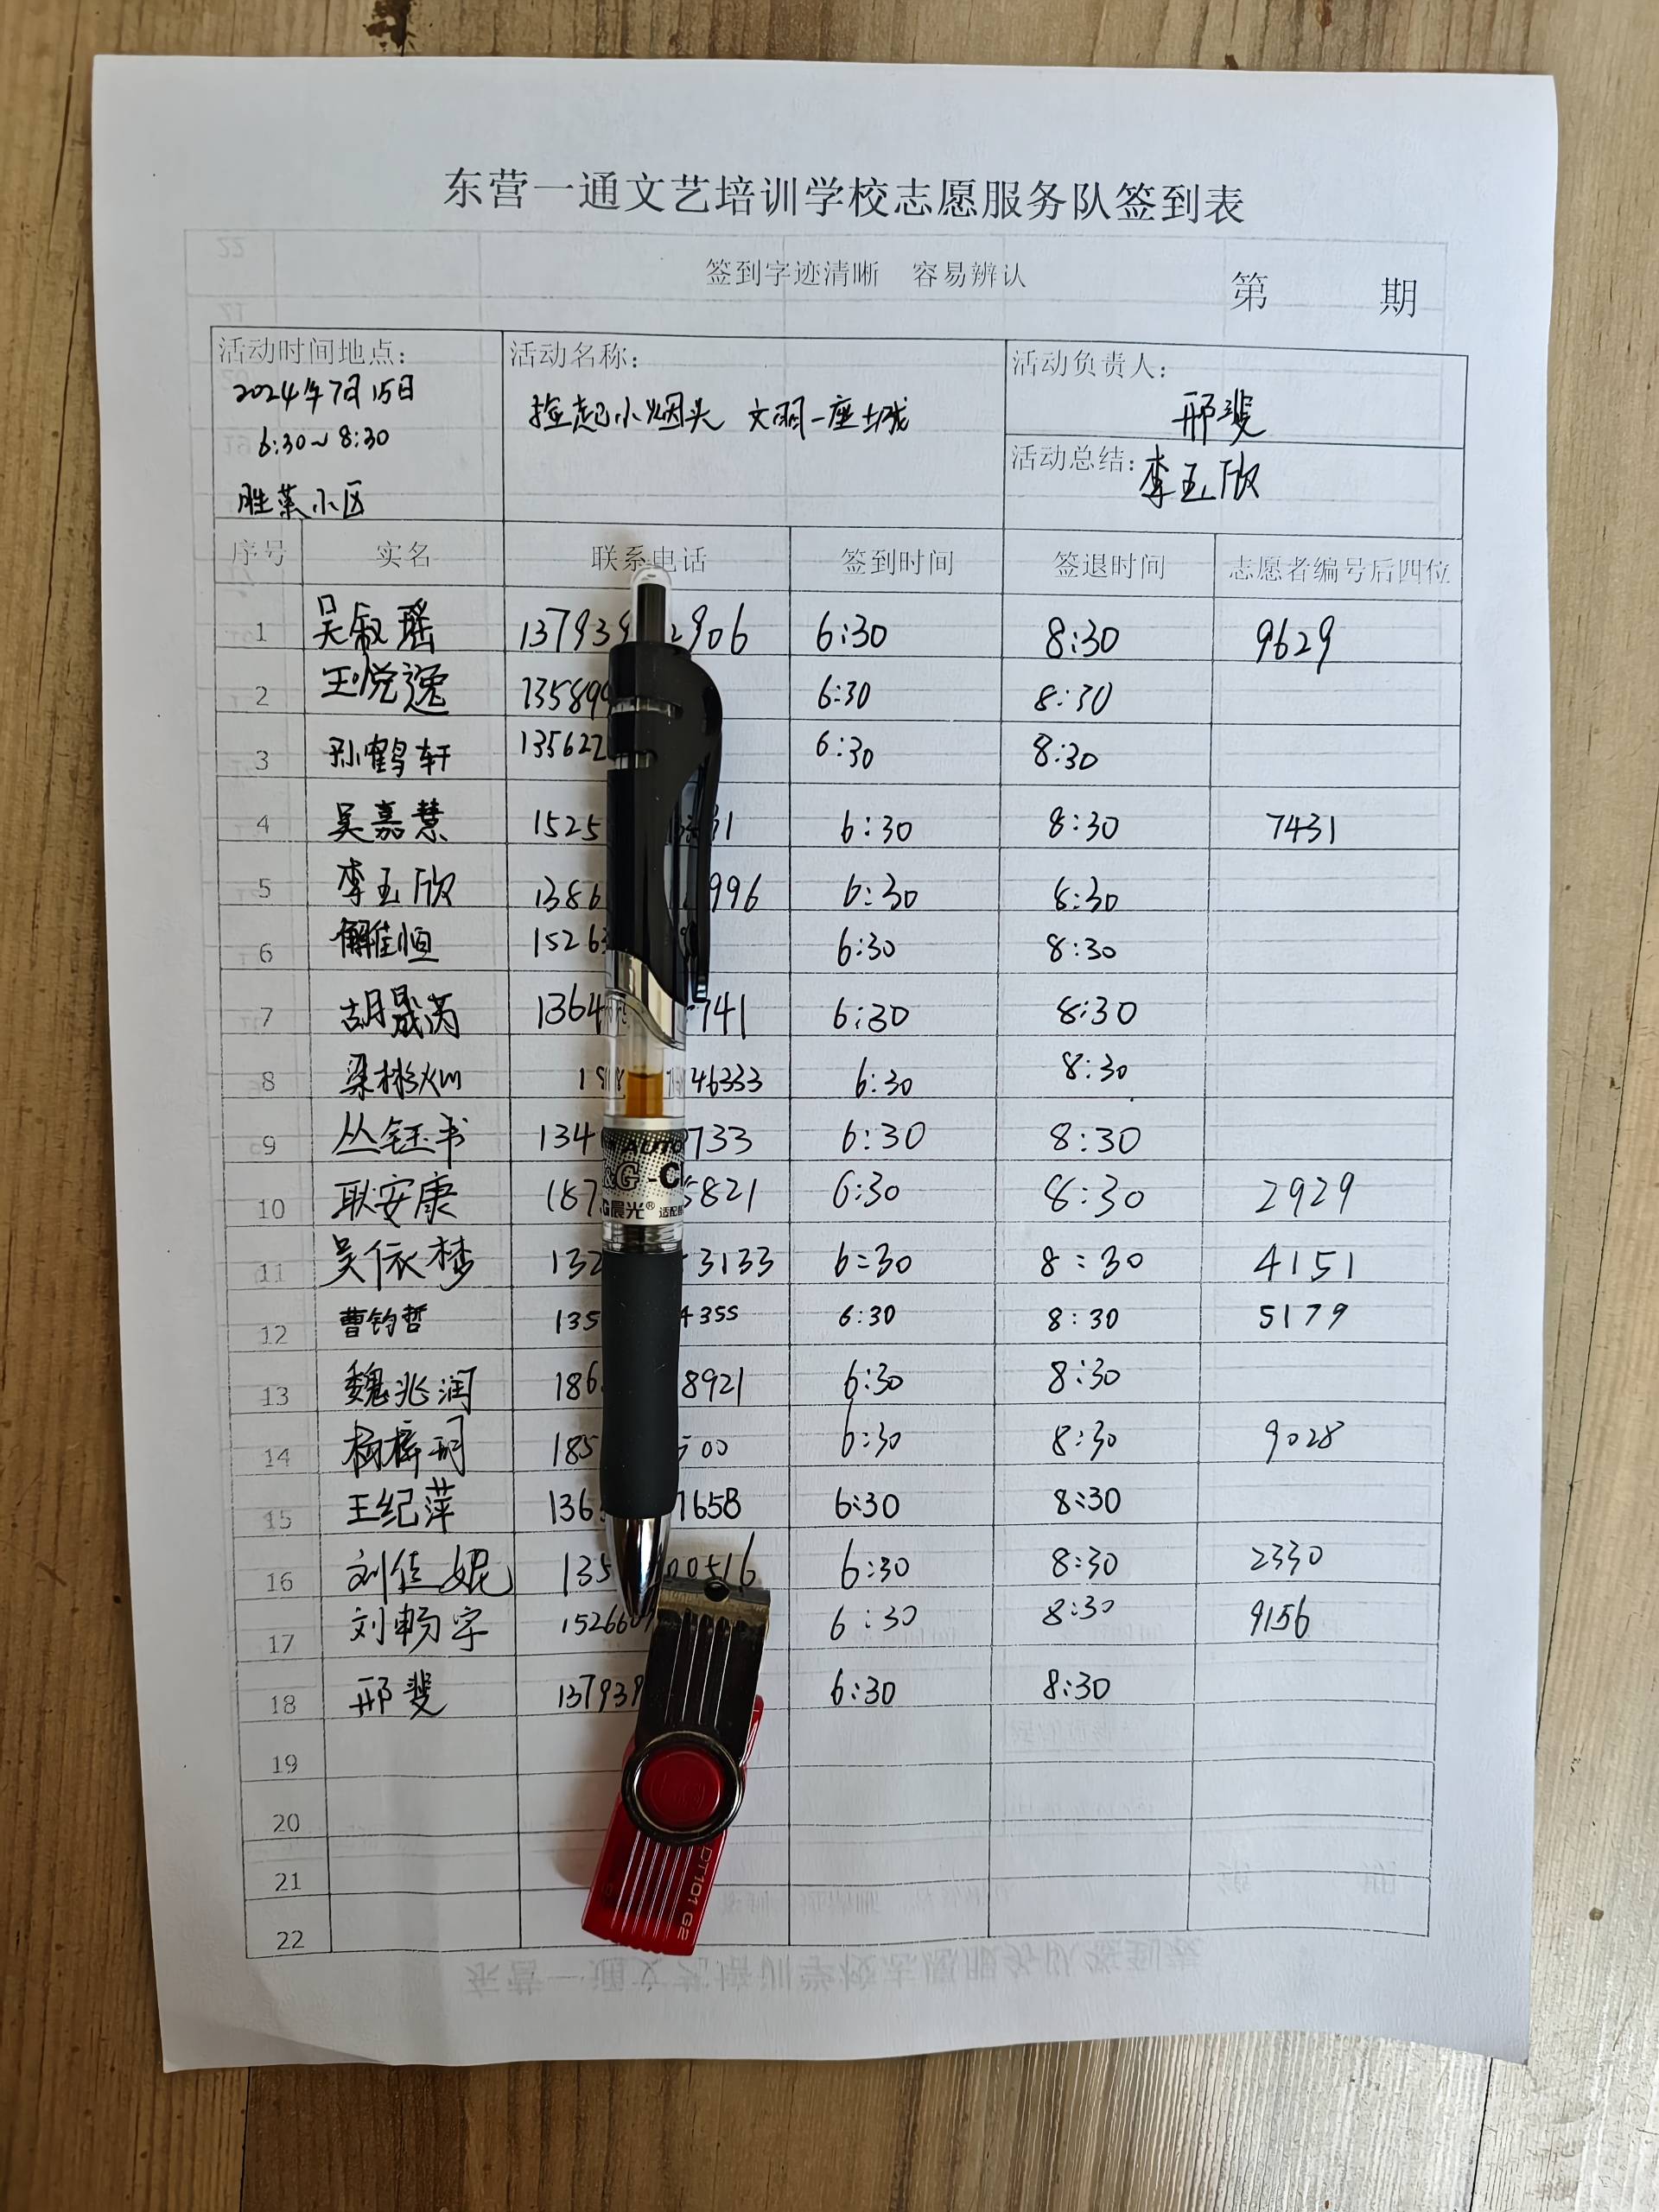 东营一通文艺培训学校志愿服务队签到表
签到字迹清晰 容易辨认
第 期
活动时间地点: 2024年7月15日 6:30~8:30
活动名称: 捡起小烟头 文明一座城
活动负责人: 邢斐
活动总结: 李玉欣
序号 实名 联系电话 签到时间 签退时间 志愿者编号后四位
1 吴叙瑶 13793 2906 6:30 8:30 9629
2 王悦逸 13589 6:30 8:30
3 孙鹤轩 135622 6:30 8:30
4 吴嘉慧 1525 31 6:30 8:30 7431
5 李玉欣 1386 996 6:30 8:30
6 解佳恒 1526 6:30 8:30
7 胡晟菡 1364 741 6:30 8:30
8 梁彬 1 46333 6:30 8:30
9 丛钰书 134 733 6:30 8:30
10 耿安康 187 5821 6:30 8:30 2929
11 吴依梦 132 3133 6:30 8:30 4151
12 曹钧哲 135 4355 6:30 8:30 5179
13 魏兆润 186 8921 6:30 8:30
14 杨梓玥 185 500 6:30 8:30 9028
15 王纪萍 136 7658 6:30 8:30
16 刘佳妮 135 00516 6:30 8:30 2330
17 刘畅宇 15266 6:30 8:30 9156
18 邢斐 13793 6:30 8:30
19
20
21
22
AUTO
&G -C
G晨光® 适配
DT101 G2